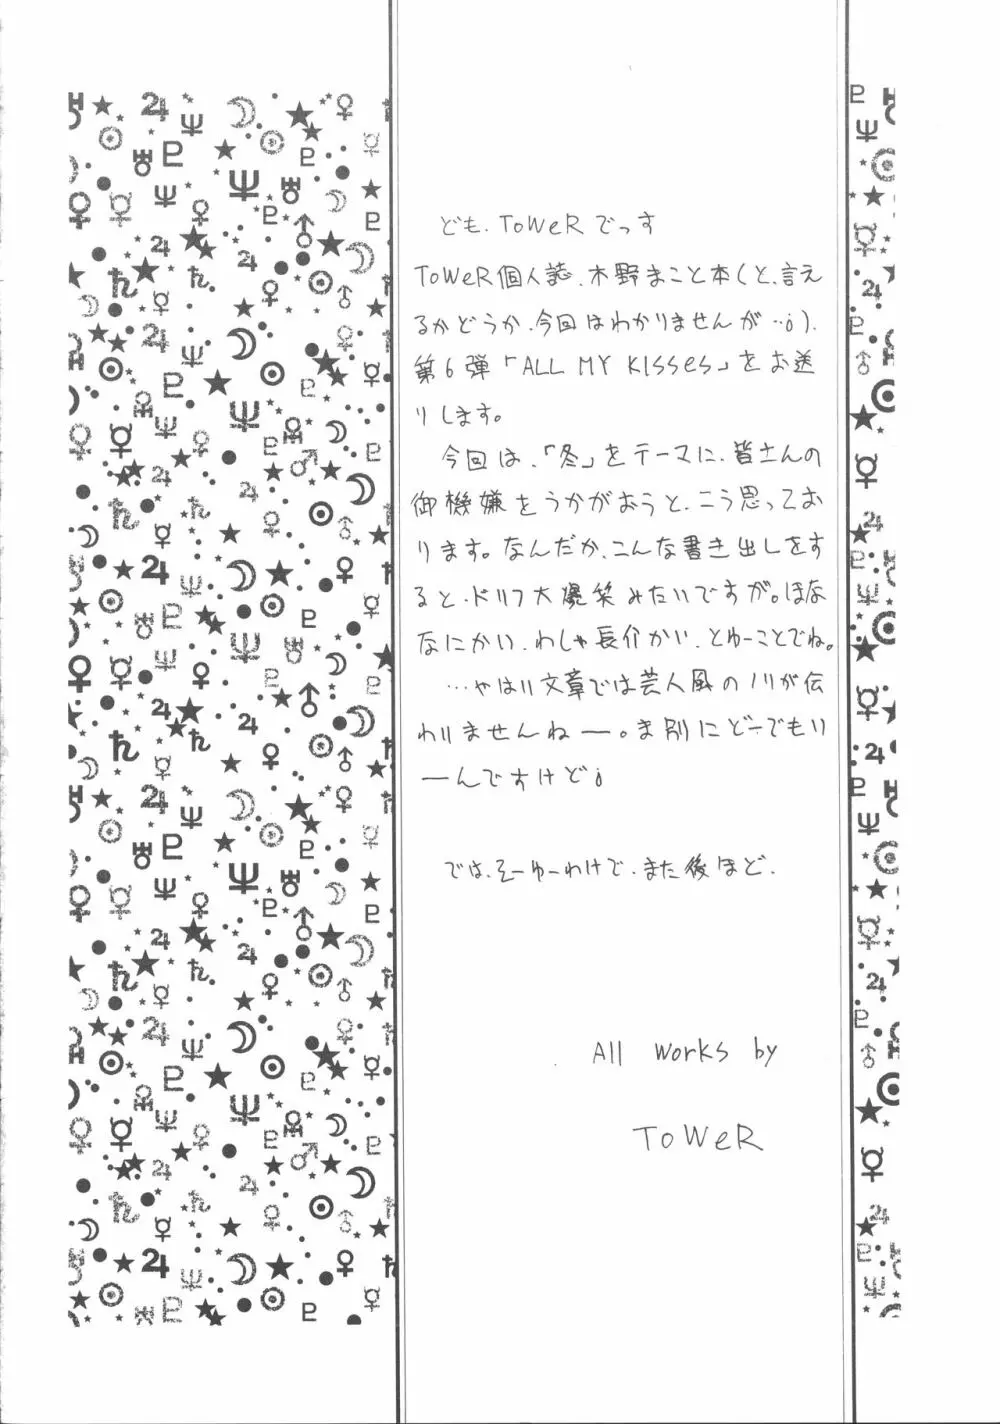 ども、ToWeRでっす
ToWeR個人誌、木野まこと本(と、言え
るかどうか、今回はわかりませんが…;)、
第6弾「ALL MY KIsses」をお送
りします。
今回は、「冬」をテーマに、皆さんの
御機嫌をうかがおうと、こう思ってお
ります。なんだか、こんな書き出しをす
ると、ドリフ大爆笑みたいですが。ほな
なにかい、わしゃ長介かい、とゆーことでね。
…やはり文章では芸人風のノリが伝
わりませんねー。ま別にどーでもい
ーんですけど;
では、そーゆーわけで、また後ほど、
All works by
ToWeR